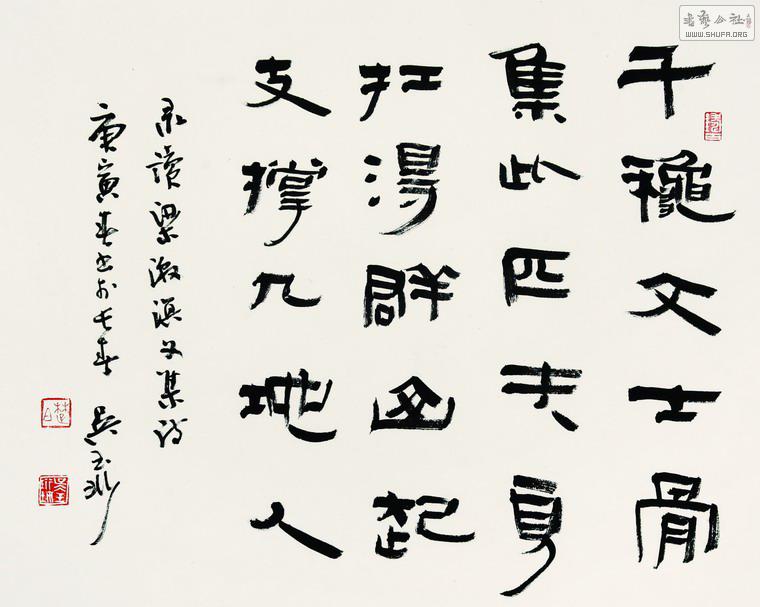 書藝公社
WWW.SHUFA.ORG
千穐文士骨
集此匹夫身
扛得群起
支撑九地人
录读梁漱溟文集诗
庚寅春书於长春 吴玉